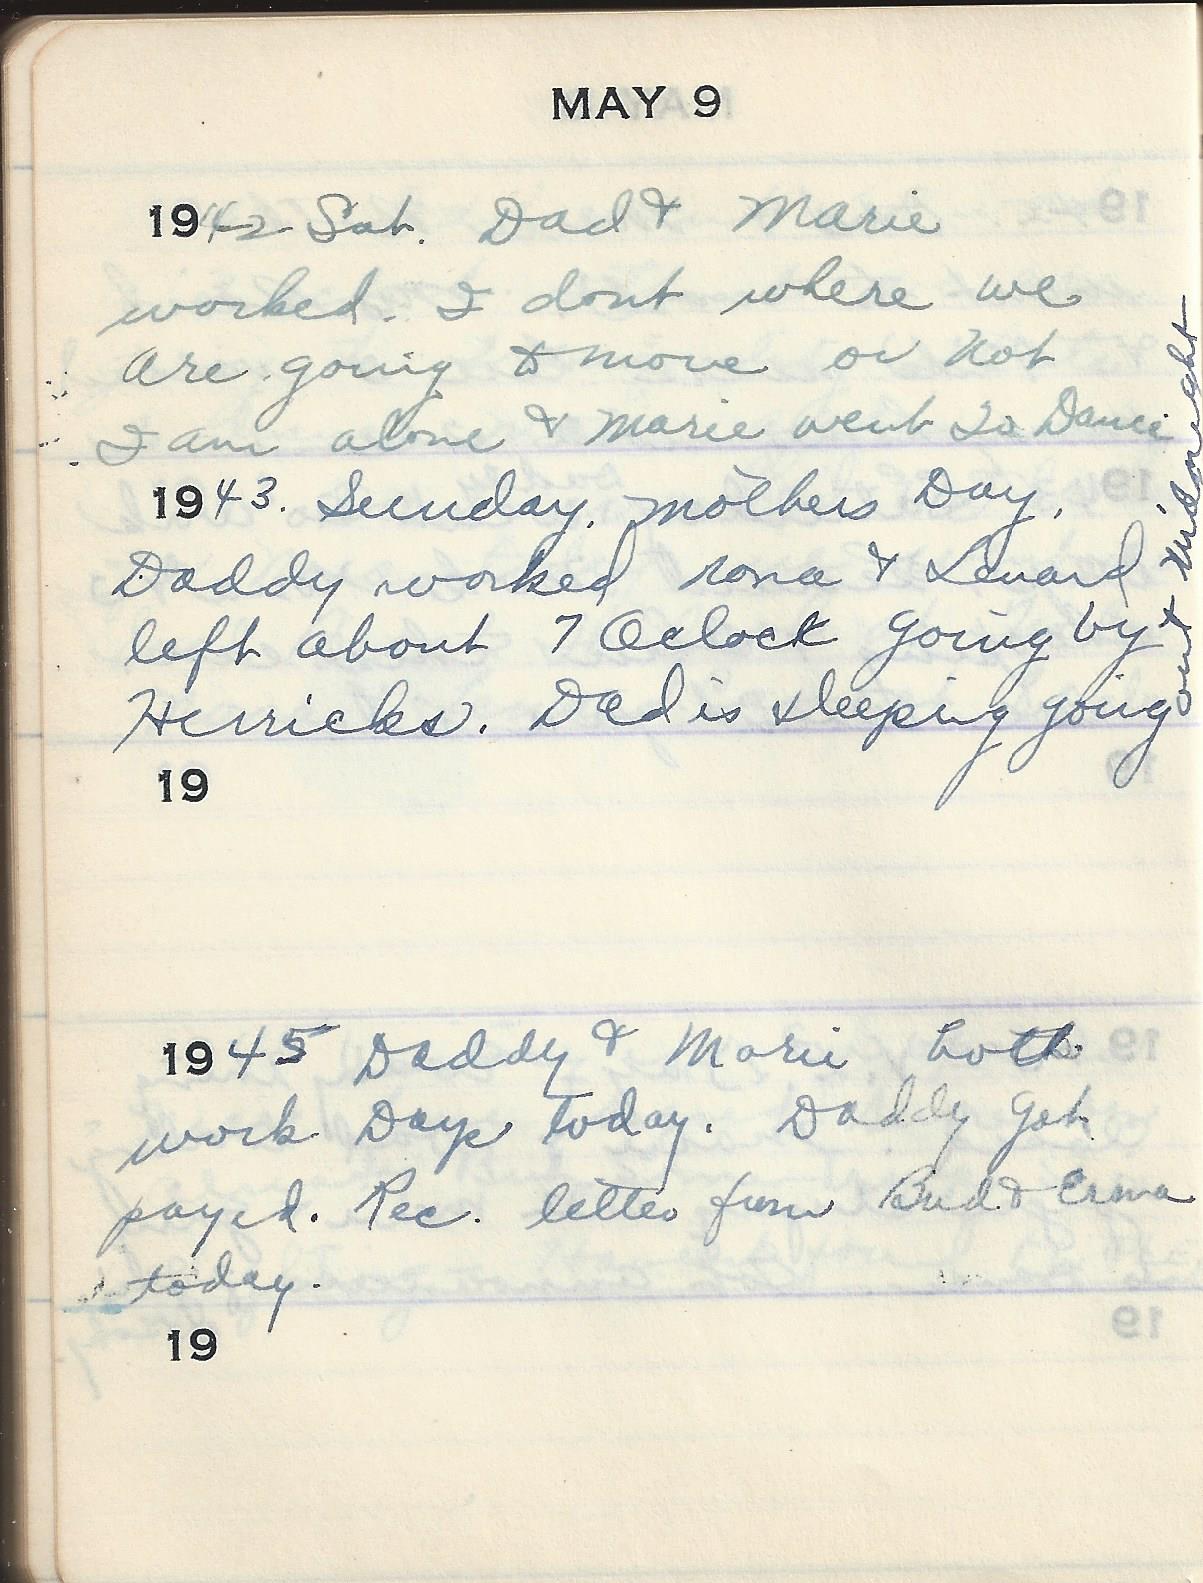 MAY 9
1942 Sat. Dad & Marie
worked. I dont where we
are going to move or not
I am alone & Marie went to Dance
1943. Sunday, mothers Day.
Daddy worked rona & Lenard
left about 7 Oclock going by
Herricks. Dad is sleeping going
out midnight
19
1945 Daddy & Marie both
work Days today. Daddy got
payed. Rec. letter from Bud & Erma
today.
19